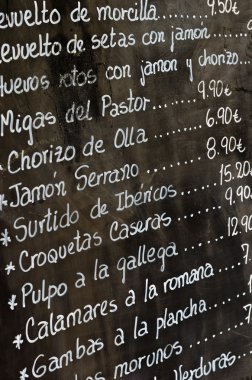 evuelto de morcilla....9.50€
evuelto de setas con jamon.....
uevos rotos con jamon y chorizo...
Migas del Pastor.......9.90€
* Chorizo de Olla........6.90€
* Jamón Serrano........8.90€
* Surtido de Ibéricos.......15.20
* Croquetas Caseras.......9.90
* Pulpo a la gallega.......12.90
* Calamares a la romana....7
* Gambas a la plancha......
morunos.......
Verduras.